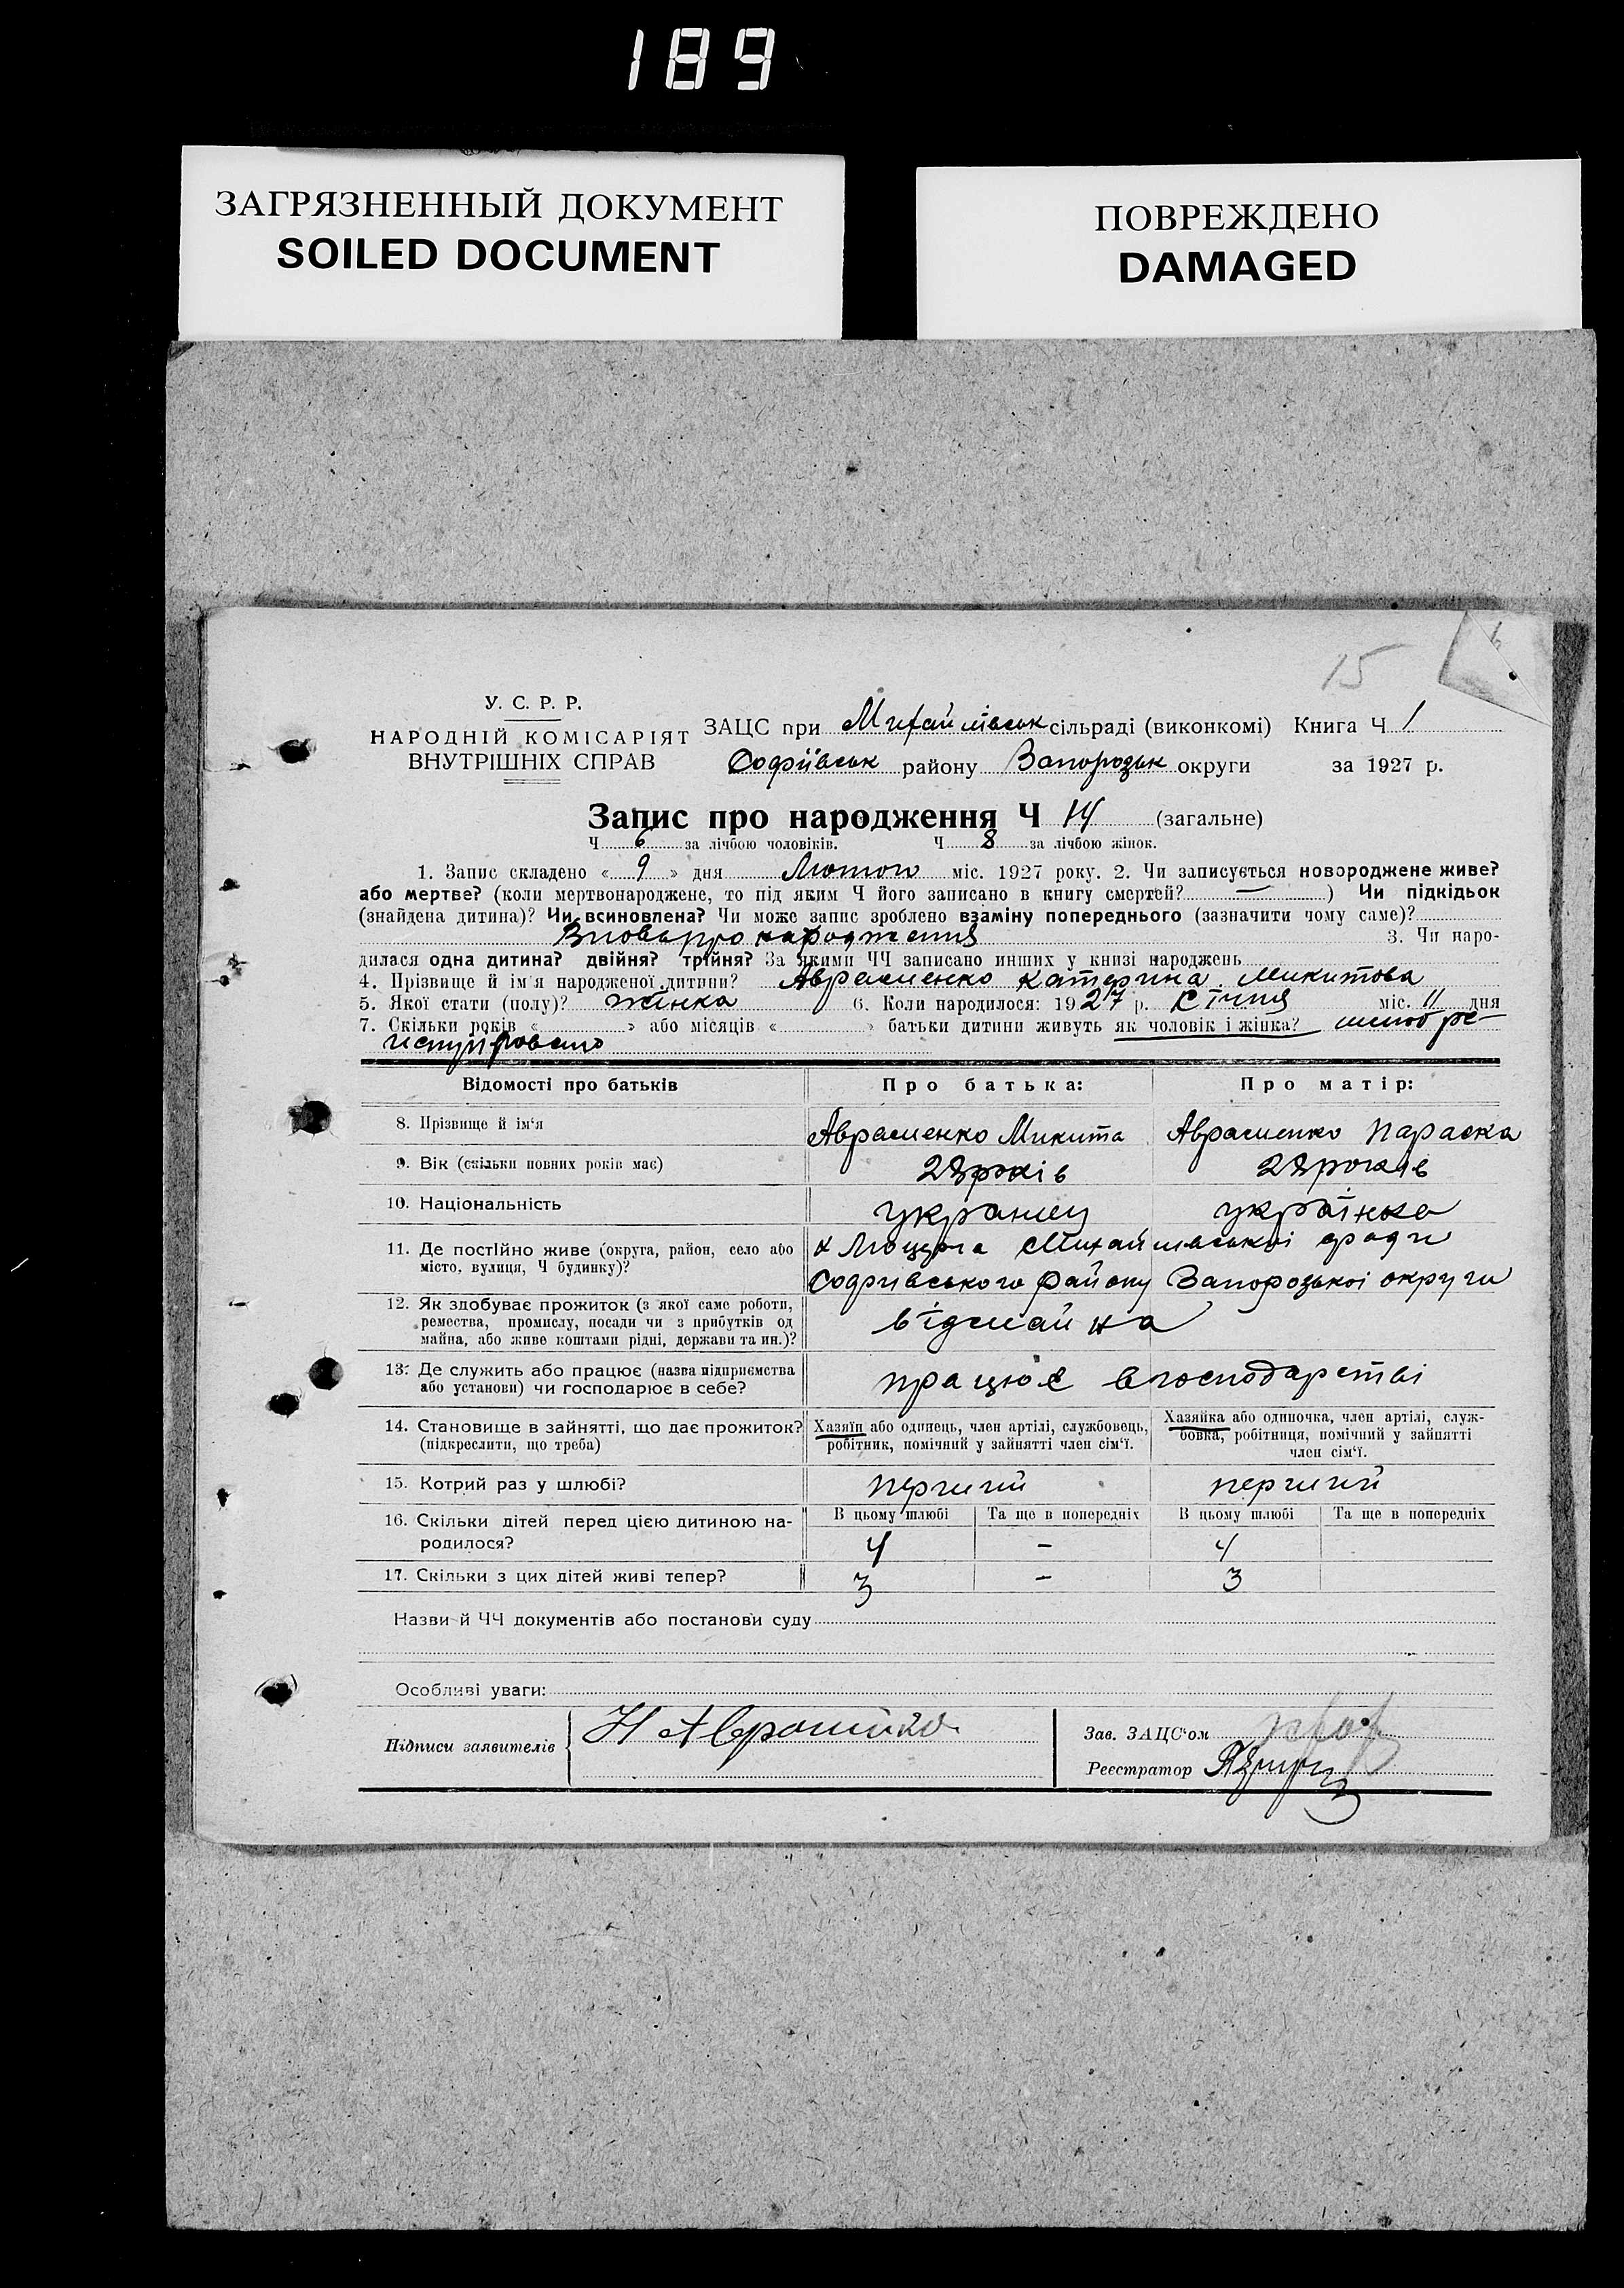 189
ЗАГРЯЗНЕННЫЙ ДОКУМЕНТ
SOILED DOCUMENT
ПОВРЕЖДЕНО
DAMAGED
15
У. С. Р. Р.
НАРОДНІЙ КОМІСАРІЯТ
ВНУТРІШНІХ СПРАВ
ЗАЦС при Михайлівськ сільраді (виконкомі) Книга Ч 1
Софіївськ району Запорозьк округи за 1927 р.
Запис про народження Ч 14 (загальне)
Ч 6 за лічбою чоловіків. Ч 8 за лічбою жінок.
1. Запис складено « 9 » дня Лютого міс. 1927 року. 2. Чи записується новороджене живе?
або мертве? (коли мертвонароджене, то під яким Ч його записано в книгу смертей? — ) Чи підкідьок
(знайдена дитина)? Чи всиновлена? Чи може запис зроблено взаміну попереднього (зазначити чому саме)?
Вновь про народження 3. Чи наро-
дилася одна дитина? двійня? трійня? За якими ЧЧ записано инших у книзі народжень
4. Прізвище й ім'я народженої дитини? Авраменко Катерина Микитова
5. Якої стати (полу)? жінка 6. Коли народилося: 1927 р. Січня міс. 11 дня
7. Скільки років « » або місяців « » батьки дитини живуть як чоловік і жінка? шлюб ре-
Відомості про батьків
Про батька:
Про матір:
8. Прізвище й ім'я
Авраменко Микита
Авраменко Параска
9. Вік (скільки повних років має)
28 років
28 років
10. Національність
украинец
українка
11. Де постійно живе (округа, район, село або
місто, вулиця, Ч будинку)?
Михайлівської сради
Софіївського району Запорозької округи
12. Як здобуває прожиток (з якої саме роботи,
ремества, промислу, посади чи з прибутків од
майна, або живе коштами рідні, держави та ин.)?
від майна
13. Де служить або працює (назва підприємства
або установи) чи господарює в себе?
працює в господарстві
14. Становище в зайнятті, що дає прожиток?
(підкреслити, що треба)
Хазяїн або одинець, член артілі, службовець,
робітник, помічний у зайнятті член сім'ї.
Хазяйка або одиночка, член артілі, служ-
бовка, робітниця, помічний у зайнятті
член сім'ї.
15. Котрий раз у шлюбі?
перший
перший
16. Скільки дітей перед цією дитиною на-
родилося?
В цьому шлюбі
Та ще в попередніх
В цьому шлюбі
Та ще в попередніх
4
-
4
17. Скільки з цих дітей живі тепер?
3
-
3
Назви й ЧЧ документів або постанови суду
Особливі уваги:
Підписи заявителів
Зав. ЗАЦС'ом
Реєстратор